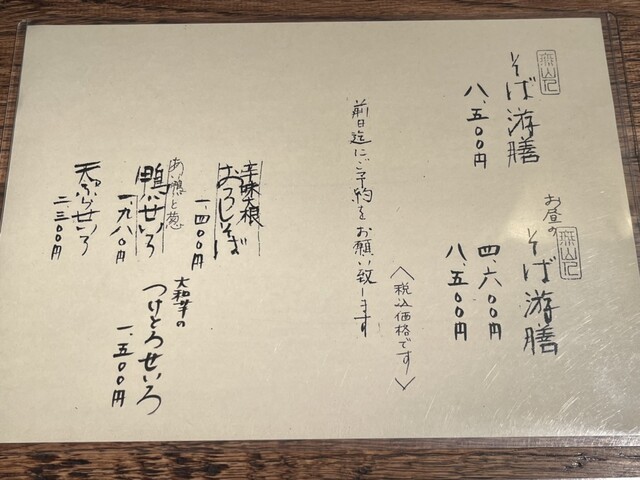 無山 そば游膳
八、五〇〇円
お昼の 無山 そば游膳
四、六〇〇円
八、五〇〇円
〈税込価格です〉
前日迄にご予約をお願い致します
辛味大根
おろしそば
一、四〇〇円
鴨せいろ
一、九八〇円
大和芋の
つけとろせいろ
一、五〇〇円
天ぷらせいろ
二、三〇〇円